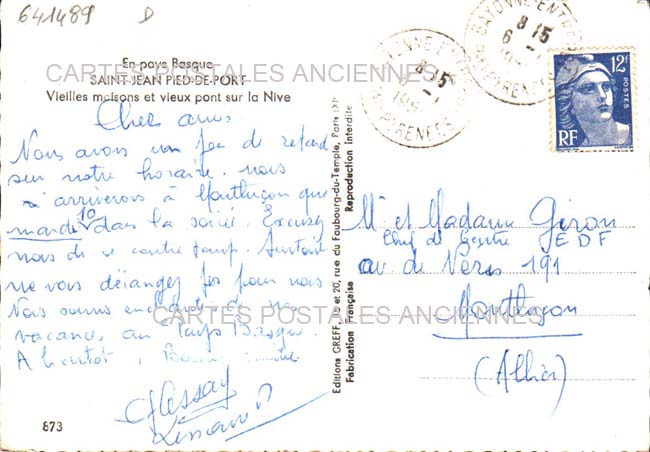 641489 D
En pays Basque
SAINT-JEAN PIED-DE-PORT
Vieilles maisons et vieux pont sur la Nive
CARTES POSTALES ANCIENNES
Chers amis
Nous avons un peu de retard
sur notre horaire. nous
n'arriverons à Montluçon que
mardi 10 dans la soirée. Excusez
nous de ce contre temps. Surtout
ne vous dérangez pas pour nous
Nous sommes enchantés de nos
vacances au Pays Basque.
A bientôt, Bonne
873
Editions GREFF, 18 et 20, rue du Faubourg-du-Temple, Paris (XIe)
Fabrication Française Reproduction interdite
BAYONNE-ENTREPOT
8 15
6
PYRENEES
12F
POSTES
RF
Mr et Madame Giron
Chef de Centre E D F
av. de Néris 191
Montluçon
(Allier)
CARTES POSTALES ANCIENNES